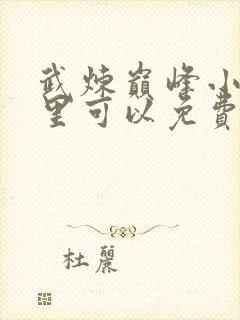 武煉巔峰小
里可以免費
杜麗